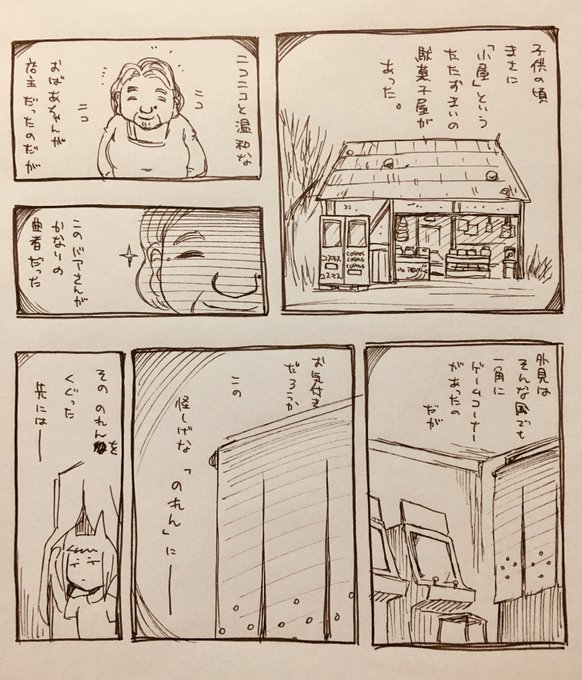 子供の頃
まさに
「小屋」という
たたずまいの
駄菓子屋が
あった。
コスモス
コスモス
COSMOS
COSMOS
COSMOS
ニコニコと温和な
ニコ
ニコ
おばあちゃんが
店主だったのだが
このバアさんが
かなりの
曲者だった
外見は
そんな風でも
一角に
ゲームコーナー
があったの
だが
お気付き
だろうか
この
怪しげな「のれん」に──
その のれんを
くぐった
先には──